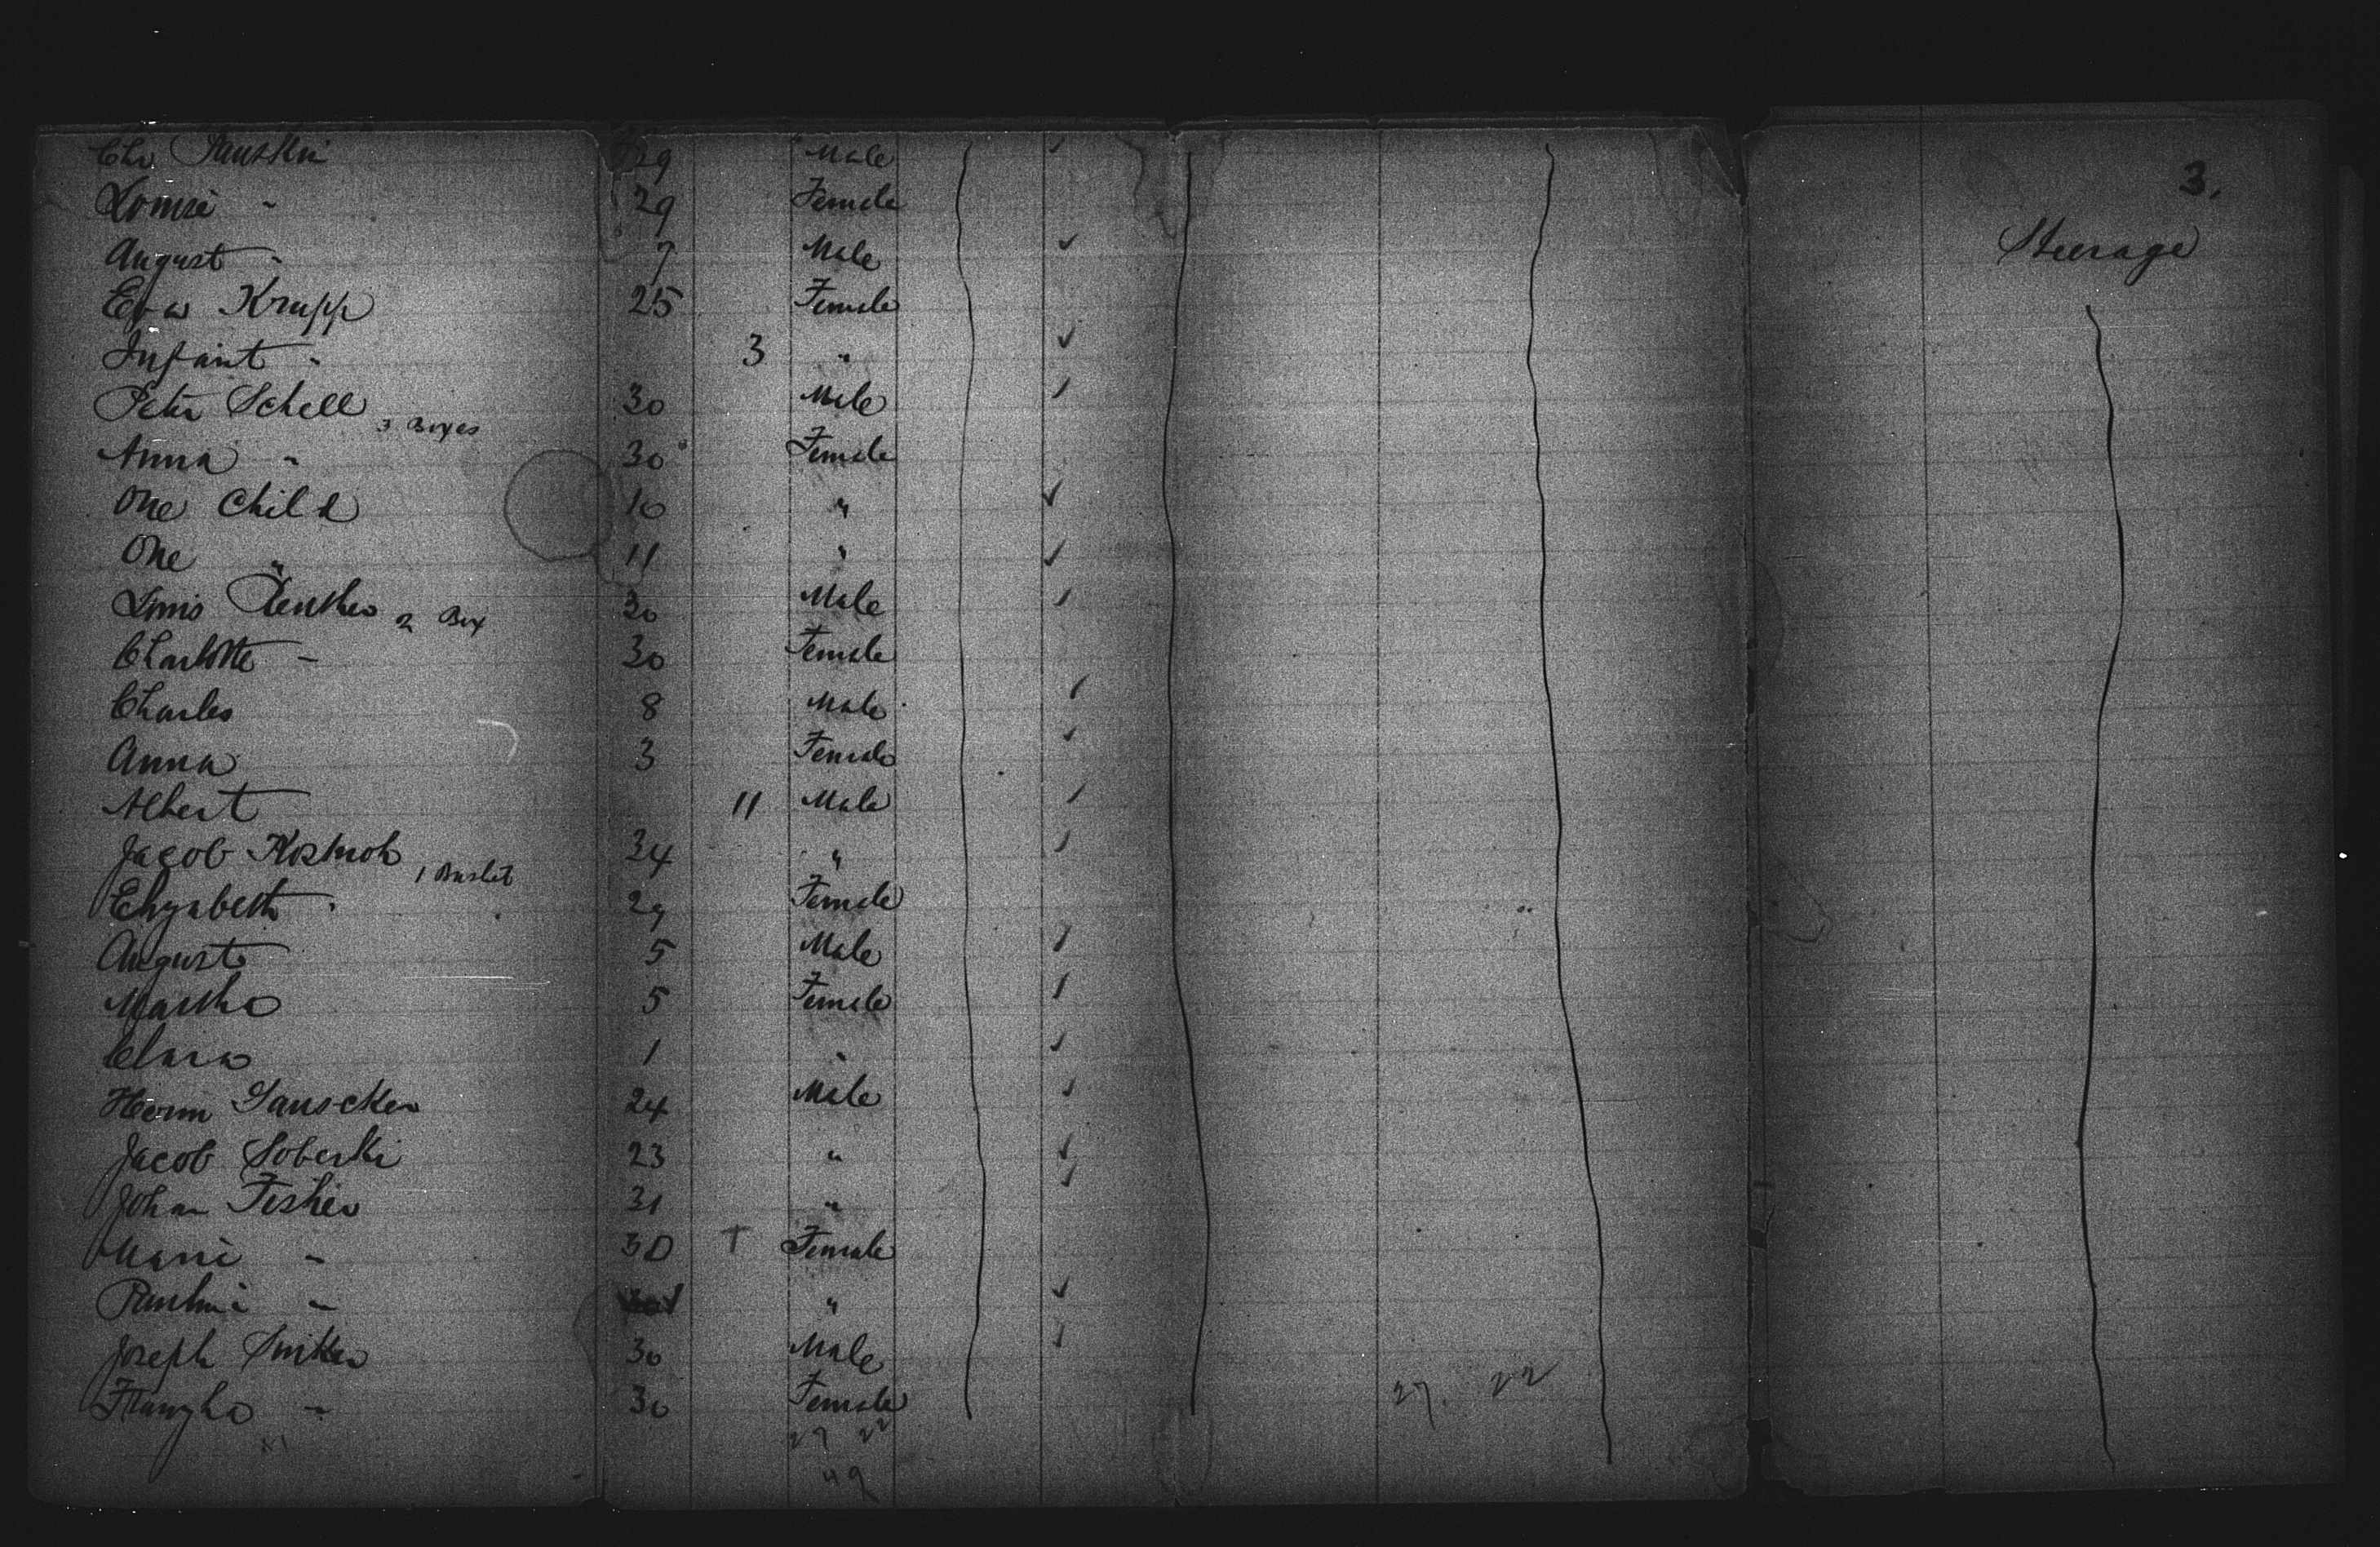 3.
Steerage
Chr 29 Male
Louise " 29 Female
August " 7 Male
Eva Krupp 25 Female
Infant " 3 "
Peter Schell 3 Boxes 30 Male
Anna " 30 Female
One Child 10 "
One " 11 "
Louis 2 Box 30 Male
Charlotte " 30 Female
Charles 8 Male
Anna 3 Female
Albert 11 Male
Jacob 1 Basket 34 "
Elizabeth " 29 Female
August 5 Male
Martha 5 Female
Clara 1 "
Herm 24 Male
Jacob Soberski 23 "
Johan Fisher 31 "
Marie " 30 T Female
Pauline " "
Joseph 30 Male
" 30 Female
27. 22
27 22
49